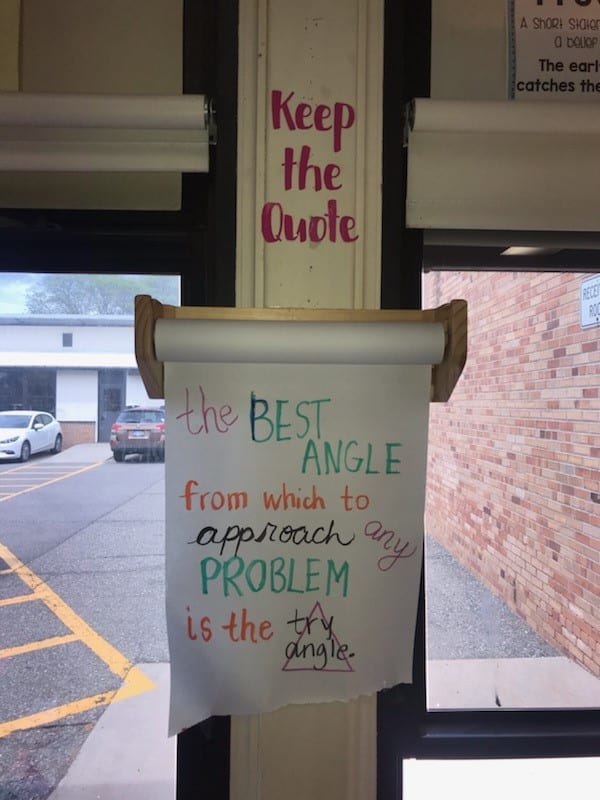 A SHORT
a belief
The
catches the
Keep
the
Quote
the BEST
ANGLE
from which to
approach any
PROBLEM
is the try
angle.